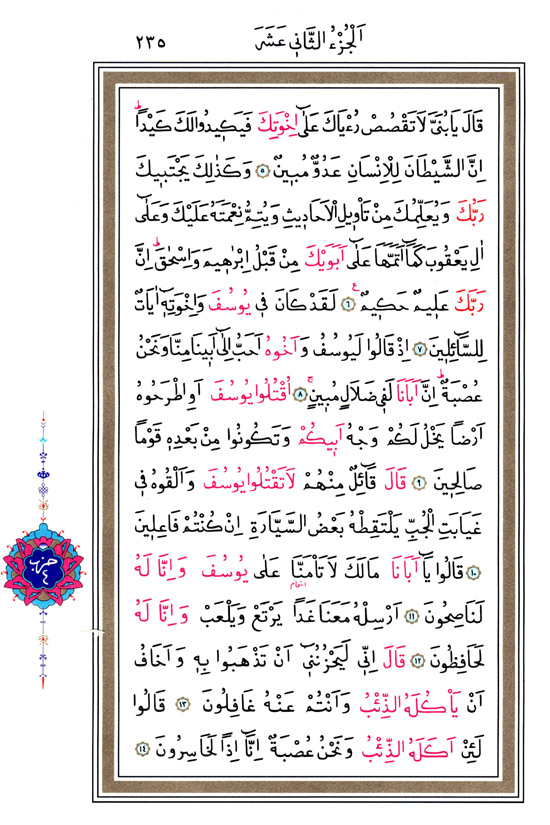 اَلْجُزْءُ الثَّانِي عَشَرَ ٢٣٥
قَالَ يَا بُنَيَّ لَا تَقْصُصْ رُءْيَاكَ عَلٰٓى اِخْوَتِكَ فَيَكِيدُوا لَكَ كَيْدًاۜ
اِنَّ الشَّيْطَانَ لِلْاِنْسَانِ عَدُوٌّ مُبِينٌ ﴿٥﴾ وَكَذٰلِكَ يَجْتَبِيكَ
رَبُّكَ وَيُعَلِّمُكَ مِنْ تَأْوِيلِ الْاَحَادِيثِ وَيُتِمُّ نِعْمَتَهُ عَلَيْكَ وَعَلٰٓى
اٰلِ يَعْقُوبَ كَمَٓا اَتَمَّهَا عَلٰٓى اَبَوَيْكَ مِنْ قَبْلُ اِبْرٰهِيمَ وَاِسْحٰقَۜ اِنَّ
رَبَّكَ عَلِيمٌ حَكِيمٌ ﴿٦﴾ ع لَقَدْ كَانَ فِي يُوسُفَ وَاِخْوَتِهِٓ اٰيَاتٌ
لِلسَّٓائِلِينَ ﴿٧﴾ اِذْ قَالُوا لَيُوسُفُ وَاَخُوهُ اَحَبُّ اِلٰٓى اَبِينَا مِنَّا وَنَحْنُ
عُصْبَةٌۜ اِنَّ اَبَانَا لَفِي ضَلَالٍ مُبِينٍۚ ﴿٨﴾ اُقْتُلُوا يُوسُفَ اَوِ اطْرَحُوهُ
اَرْضًا يَخْلُ لَكُمْ وَجْهُ اَبِيكُمْ وَتَكُونُوا مِنْ بَعْدِهِ قَوْمًا
صَالِحِينَ ﴿٩﴾ قَالَ قَٓائِلٌ مِنْهُمْ لَا تَقْتُلُوا يُوسُفَ وَاَلْقُوهُ فِي
غَيَابَتِ الْجُبِّ يَلْتَقِطْهُ بَعْضُ السَّيَّارَةِ اِنْ كُنْتُمْ فَاعِلِينَ
﴿١٠﴾ قَالُوا يَٓا اَبَانَا مَا لَكَ لَا تَأْمَنَّا عَلٰى يُوسُفَ وَاِنَّا لَهُ
لَنَاصِحُونَ ﴿١١﴾ اَرْسِلْهُ مَعَنَا غَدًا يَرْتَعْ وَيَلْعَبْ وَاِنَّا لَهُ
لَحَافِظُونَ ﴿١٢﴾ قَالَ اِنِّي لَيَحْزُنُنِٓي اَنْ تَذْهَبُوا بِهِ وَاَخَافُ
اَنْ يَأْكُلَهُ الذِّئْبُ وَاَنْتُمْ عَنْهُ غَافِلُونَ ﴿١٣﴾ قَالُوا
لَئِنْ اَكَلَهُ الذِّئْبُ وَنَحْنُ عُصْبَةٌ اِنَّٓا اِذًا لَخَاسِرُونَ ﴿١٤﴾
حزب
٤